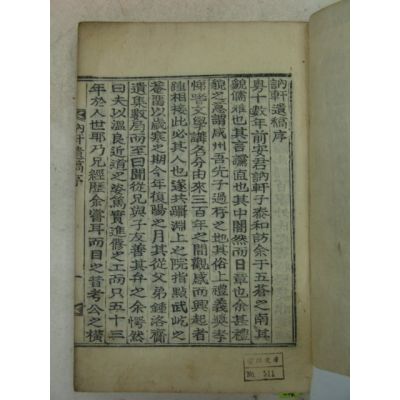 訥軒遺稿序
粤十數年前安君訥軒子泰和訪余于五蒼之南其
貌儒雅也其言讜直也其中闇然而日章也余甚禮
貌之急謂咸州吾先子過存之地其俗上禮義奬孝
悌崇文學講名分由來三百年之間觀感而興起者
踵相接此必其人也遂共躡淵上之院指點武屹之
藩蘠以歲寒之期今年復陽之月其從父弟鍾洛齎
遺集數局而至曰聞從兄與子友善其弁之余愕然
曰夫以溫良近道之姿篤實進修之工而只五十三
年於人世耶乃兄經歷余嘗耳而目之昔考公之橫
訥軒遺稿序
一
No. 511